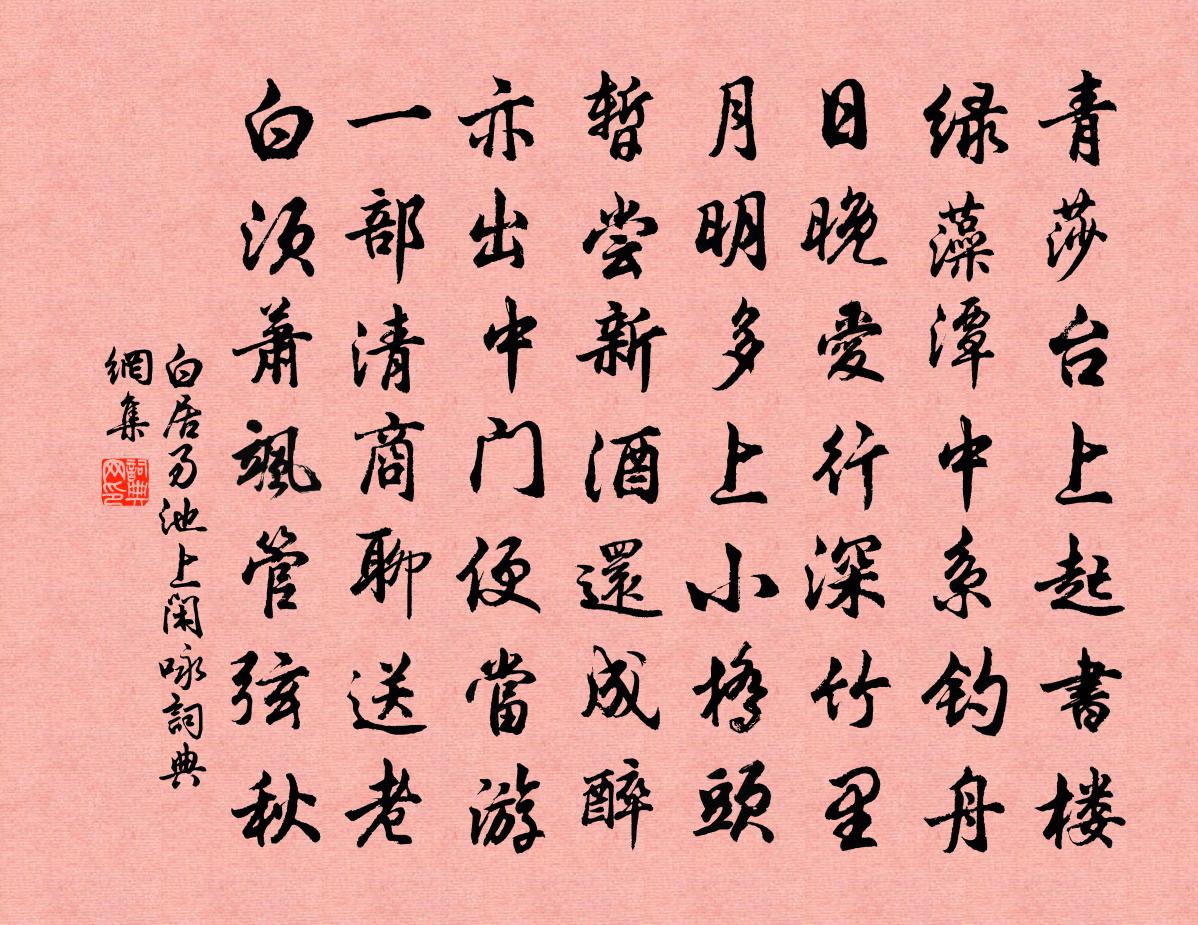 青莎台上起書楼
绿藻潭中系钓舟
日晚愛行深竹里
月明多上小橋頭
暫尝新酒還成醉
亦出中门便當游
一部清商聊送老
白须萧飒管弦秋
白居易池上闲咏詞典
網集
詞典
网印